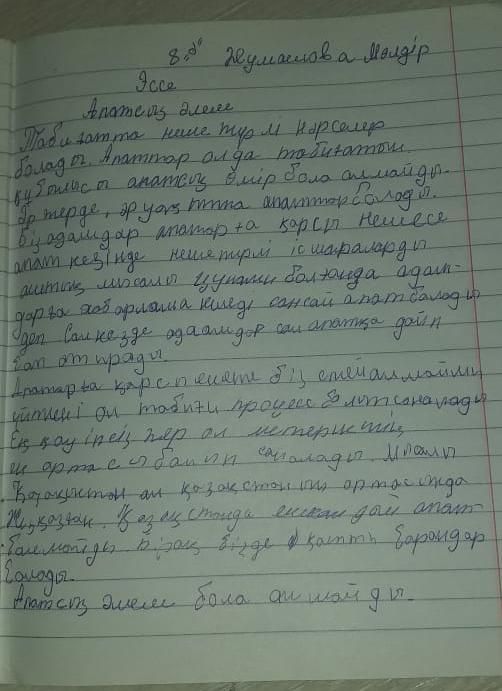 8 "б" Жумаелова Мөлдір
Эссе
Апатсыз әлем
Табиғатта неше түрлі нәрселер
болады. Апаттар олда табиғатын
құбылысы апатсыз өмір бола алмайды.
Әр жерде, әр уақытта апаттар болады.
Біз адамдар апатарға қарсы немесе
апат кезінде неше түрлі іс шараларды
аштық мысалы цунами болғанда адам-
дарға хабарлама келеді сансай апат болады
деп Сол кезде адаамдар сол апатқа дайн
боп отырады.
Апатарға қарсы ештеңе біз істей алмаймыз
үйткені ол табиғи процесс болып саналады
Ең қауіпсіз жер ол материктің
ең ортасы болып саналады. Мысалы
Қазақстан ал қазақстанның ортасында
Жезқазған. Қазақстанда ешқандай апат
болмайды. Бірақ бізде қатты борандар
болады.
Апатсыз әлем бола алмайды.